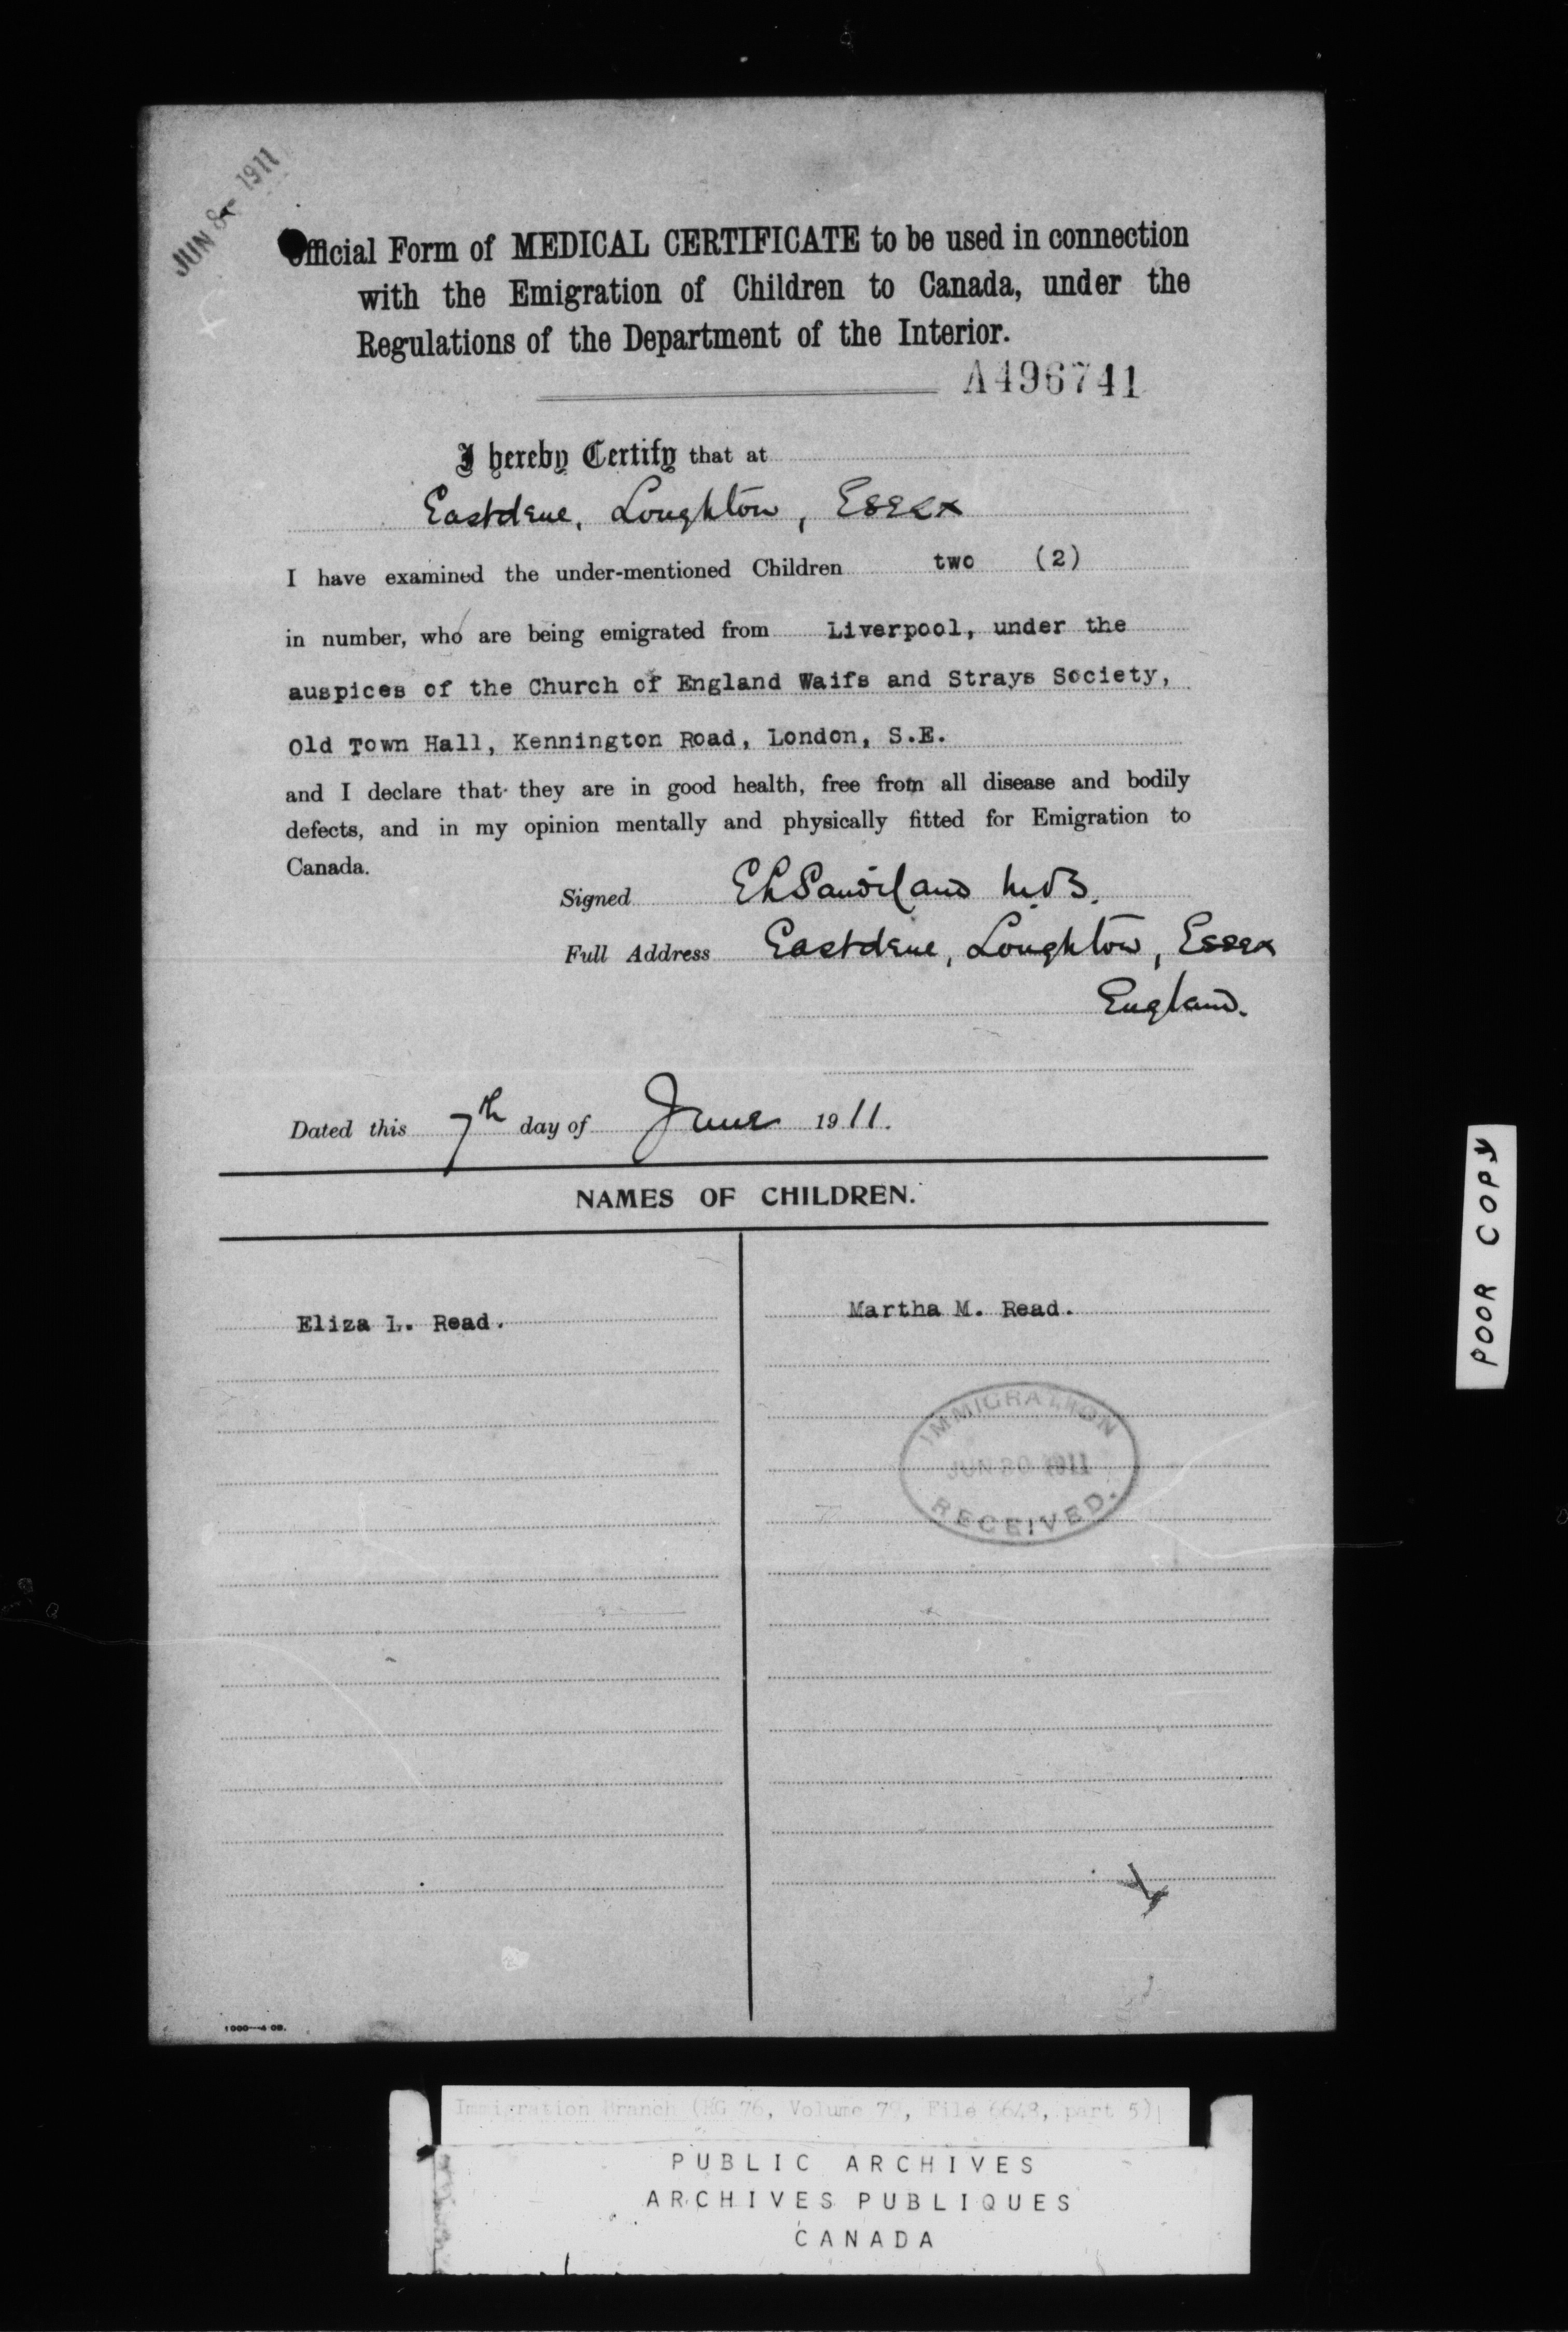 JUN 8- 1911
Official Form of MEDICAL CERTIFICATE to be used in connection
with the Emigration of Children to Canada, under the
Regulations of the Department of the Interior.
A496741
I hereby Certify that at
Eastdene, Loughton, Essex
I have examined the under-mentioned Children two (2)
in number, who are being emigrated from Liverpool, under the
auspices of the Church of England Waifs and Strays Society,
Old Town Hall, Kennington Road, London, S.E.
and I declare that they are in good health, free from all disease and bodily
defects, and in my opinion mentally and physically fitted for Emigration to
Canada.
Signed M.B.
Full Address Eastdene, Loughton, Essex
England.
Dated this 7th day of June 1911.
NAMES OF CHILDREN.
Eliza L. Read. Martha M. Read.
IMMIGRATION
JUN 20 1911
RECEIVED.
1000—4-08.
POOR COPY
Immigration Branch (RG 76, Volume 79, File 6648, part 5)
PUBLIC ARCHIVES
ARCHIVES PUBLIQUES
CANADA